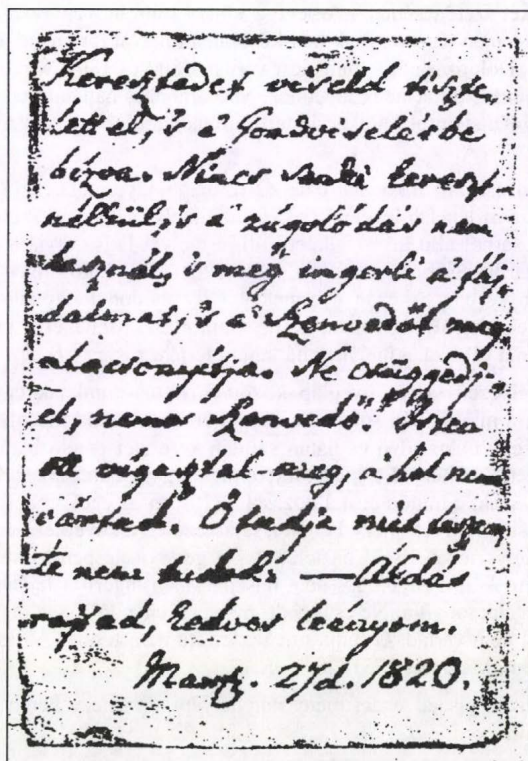 Keresztedet viseld tiszte,
lettel, 's a' Gondviselésbe
bízva. Nincs senki kereszt
nélkül, 's a' zúgolódás nem
használ, 's még ingerli a' fáj,
dalmat, 's a' Szenvedőt meg
alacsonyítja. Ne csüggedj-
el, nemes Szenvedő! Isten
ott vígasztal-meg, a' hol nem
vártad. Ő tudja mit teszen,
te nem tudod. — Áldás
reád, kedves leányom.
Mart. 27d. 1820.